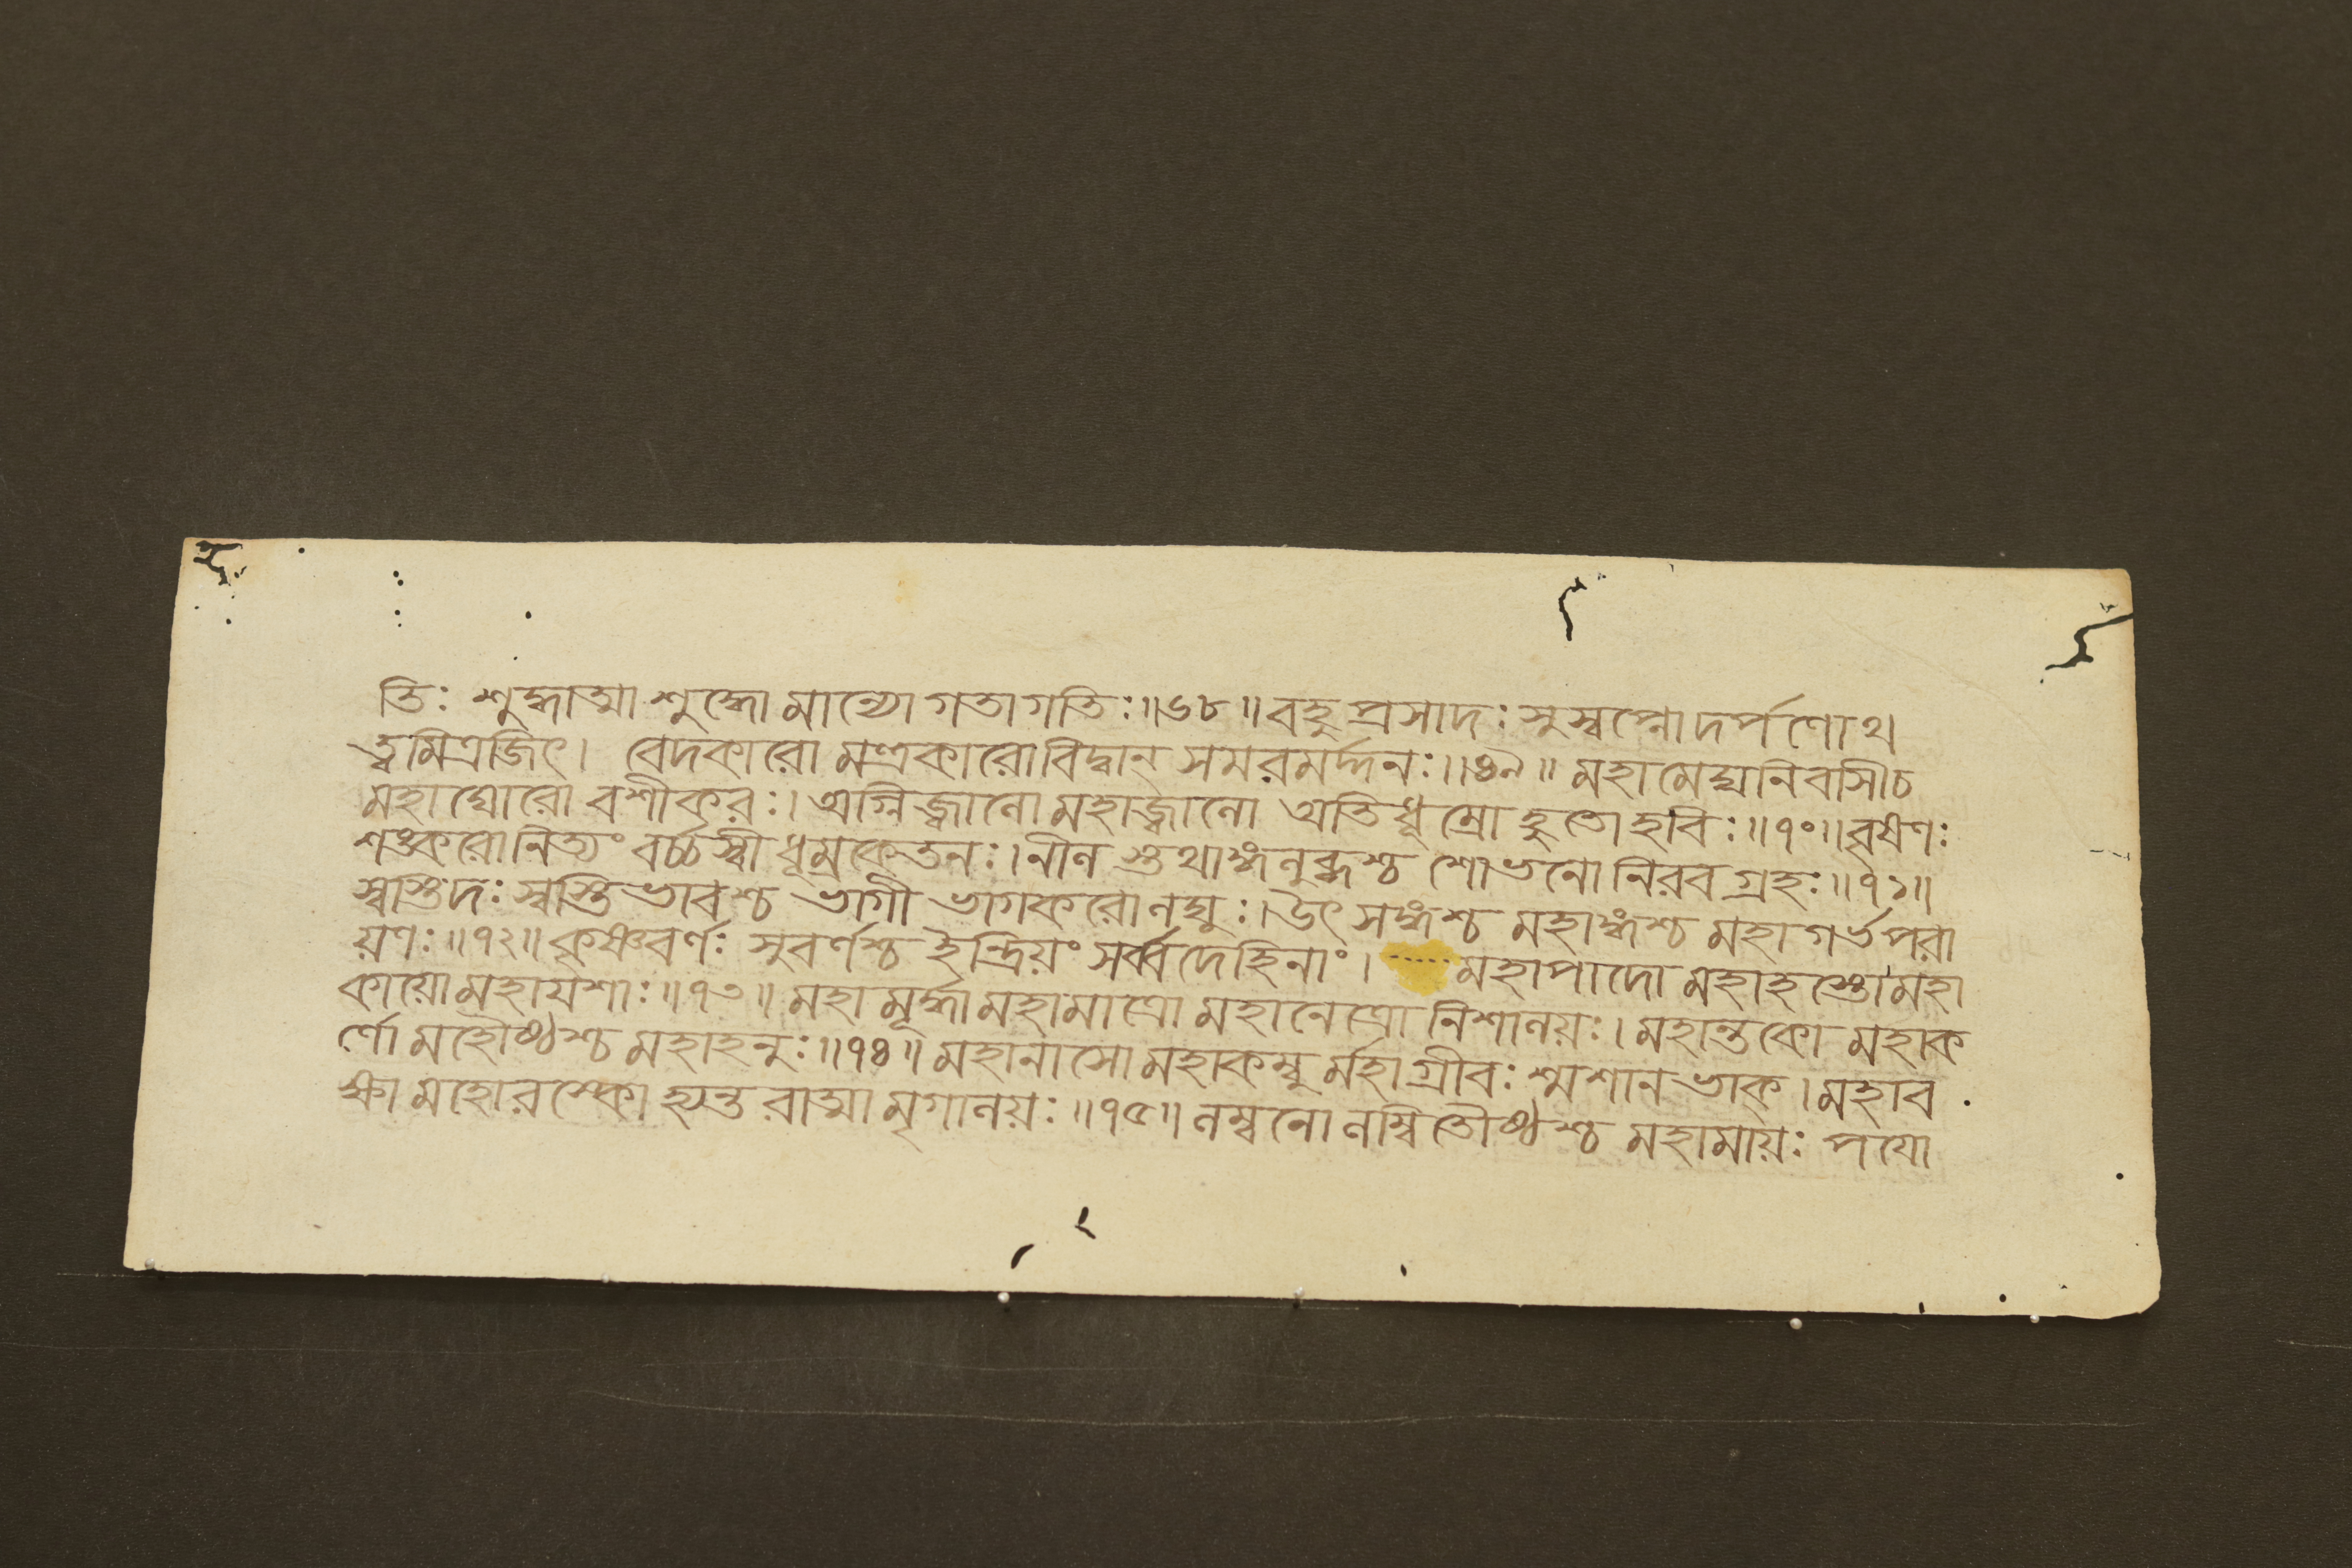 তিঃ শুদ্ধাত্মা শুদ্ধো মান্যো গতাগতিঃ॥৬৮॥ বহু প্রসাদঃ সুস্বপ্নো দর্পণোথ
ত্বমিত্রজিৎ। বেদকারো মন্ত্রকারো বিদ্বান্ সমরমর্দ্দনঃ॥৬৯॥ মহামেঘনিবাসী চ
মহাঘোরো বশীকরঃ। অগ্নিজ্বালো মহাজ্বালো অতিধূম্রো হুতো হবিঃ॥৭০॥ বৃষণঃ
শঙ্করো নিত্যং বর্চ্চস্বী ধূম্রকেতনঃ। নীল স্তথাঙ্গলুব্ধশ্চ শোভনো নিরবগ্রহঃ॥৭১॥
স্বস্তিদঃ স্বস্তিভাবশ্চ ভাগী ভাগকরো লঘুঃ। উৎসঙ্গশ্চ মহাঙ্গশ্চ মহাগর্ভপরা
য়ণঃ॥৭২॥ কৃষ্ণবর্ণঃ সুবর্ণশ্চ ইন্দ্রিয়ং সর্ব্বদেহিনাং। মহাপাদো মহাহস্তো মহা
কায়ো মহাযশাঃ॥৭৩॥ মহামূর্দ্ধা মহামাত্রো মহানেত্রো নিশালয়ঃ। মহান্তকো মহাক
র্ণো মহৌষ্ঠশ্চ মহাহনুঃ॥৭৪॥ মহানাসো মহাকম্বুর্মহাগ্রীবঃ শ্মশানভাক্। মহাব
ক্ষা মহোরস্কো হ্যন্তরাত্মা মৃগালয়ঃ॥৭৫॥ লম্বনো লম্বিতৌষ্ঠশ্চ মহামায়ঃ পযো